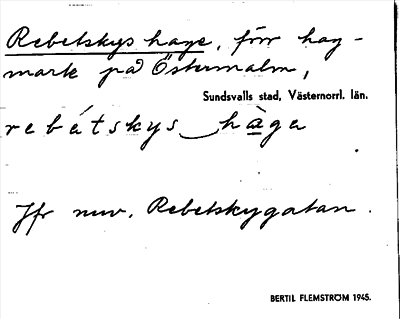 Rebetskys hage, förr hag-
mark på Östermalm,
Sundsvalls stad, Västernorrl. län.
rebétskys hàga
Jfr nuv. Rebetskygatan.
BERTIL FLEMSTRÖM 1945.